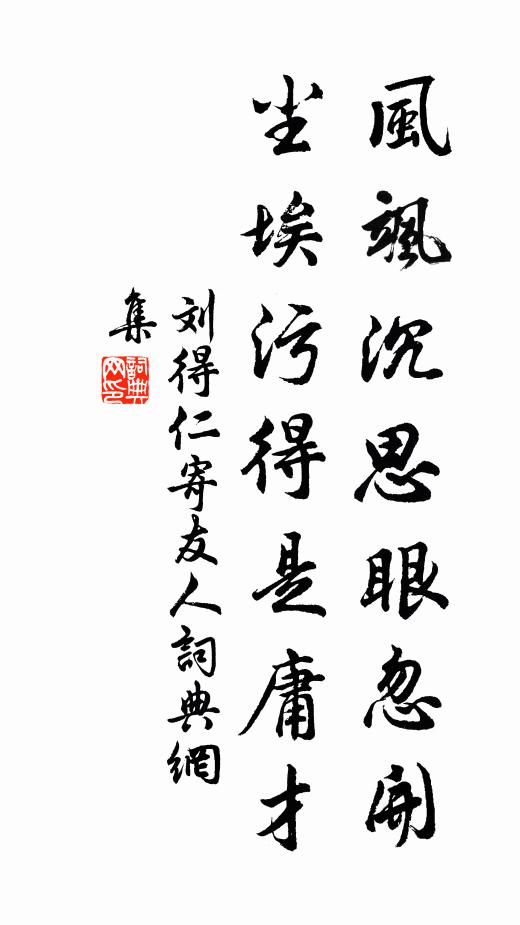 風颯沉思眼忽開
尘埃污得是庸才
刘得仁寄友人詞典網
集
詞典网印